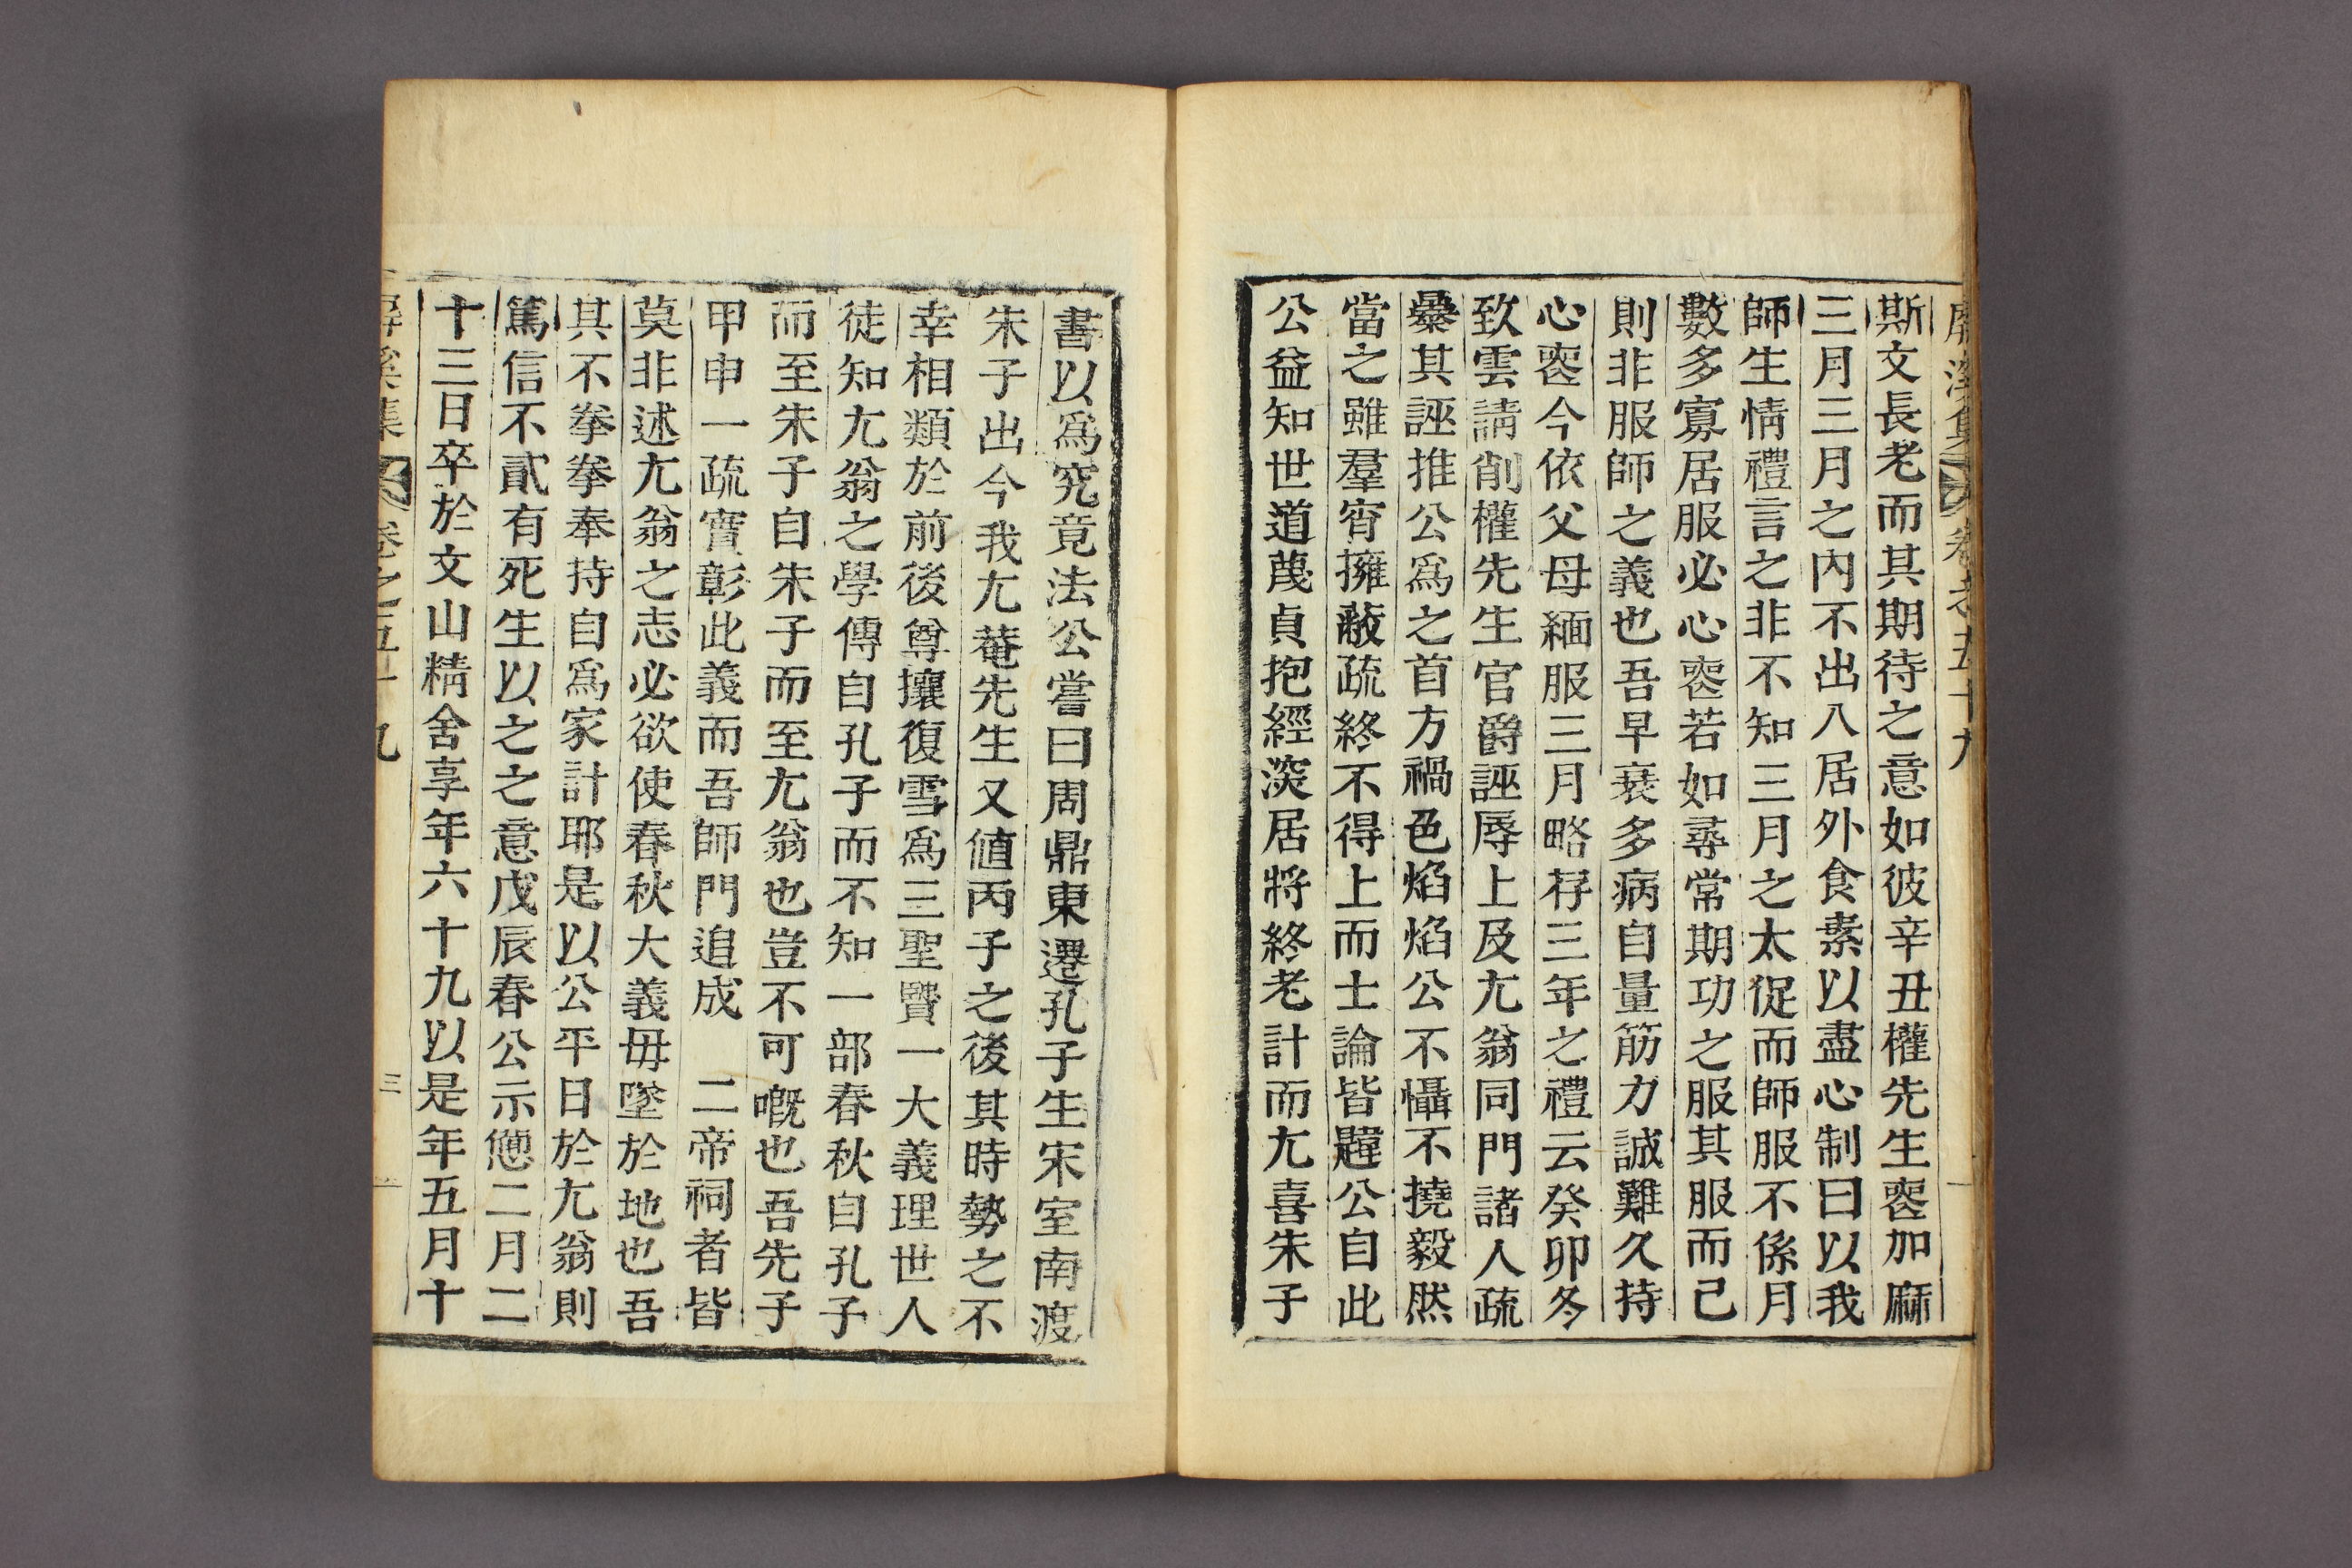 屛溪集 卷之五十九
斯文長老而其期待之意如彼辛丑權先生喪加麻
三月三月之內不出入居外食素以盡心制曰以我
師生情禮言之非不知三月之太促而師服不係月
數多寡居服必心喪若如尋常期功之服其服而已
則非服師之義也吾早衰多病自量筋力誠難久持
心喪今依父母緬服三月略存三年之禮云癸卯冬
致雲請削權先生官爵誣辱上及尤翁同門諸人疏
㬥其誣推公爲之首方禍色焰焰公不懾不撓毅然
當之雖羣宵擁蔽疏終不得上而士論皆韙公自此
公益知世道蔑貞抱經深居將終老計而尤喜朱子
書以爲究竟法公嘗曰周鼎東遷孔子生宋室南渡
朱子出今我尤菴先生又値丙子之後其時勢之不
幸相類於前後尊攘復雪爲三聖賢一大義理世人
徒知尤翁之學傳自孔子而不知一部春秋自孔子
而至朱子自朱子而至尤翁也豈不可嘅也吾先子
甲申一疏實彰此義而吾師門追成　二帝祠者皆
莫非述尤翁之志必欲使春秋大義毋墜於地也吾
其不拳拳奉持自爲家計耶是以公平日於尤翁則
篤信不貳有死生以之之意戊辰春公示憊二月二
十三日卒於文山精舍享年六十九以是年五月十
屛溪集 卷之五十九 三